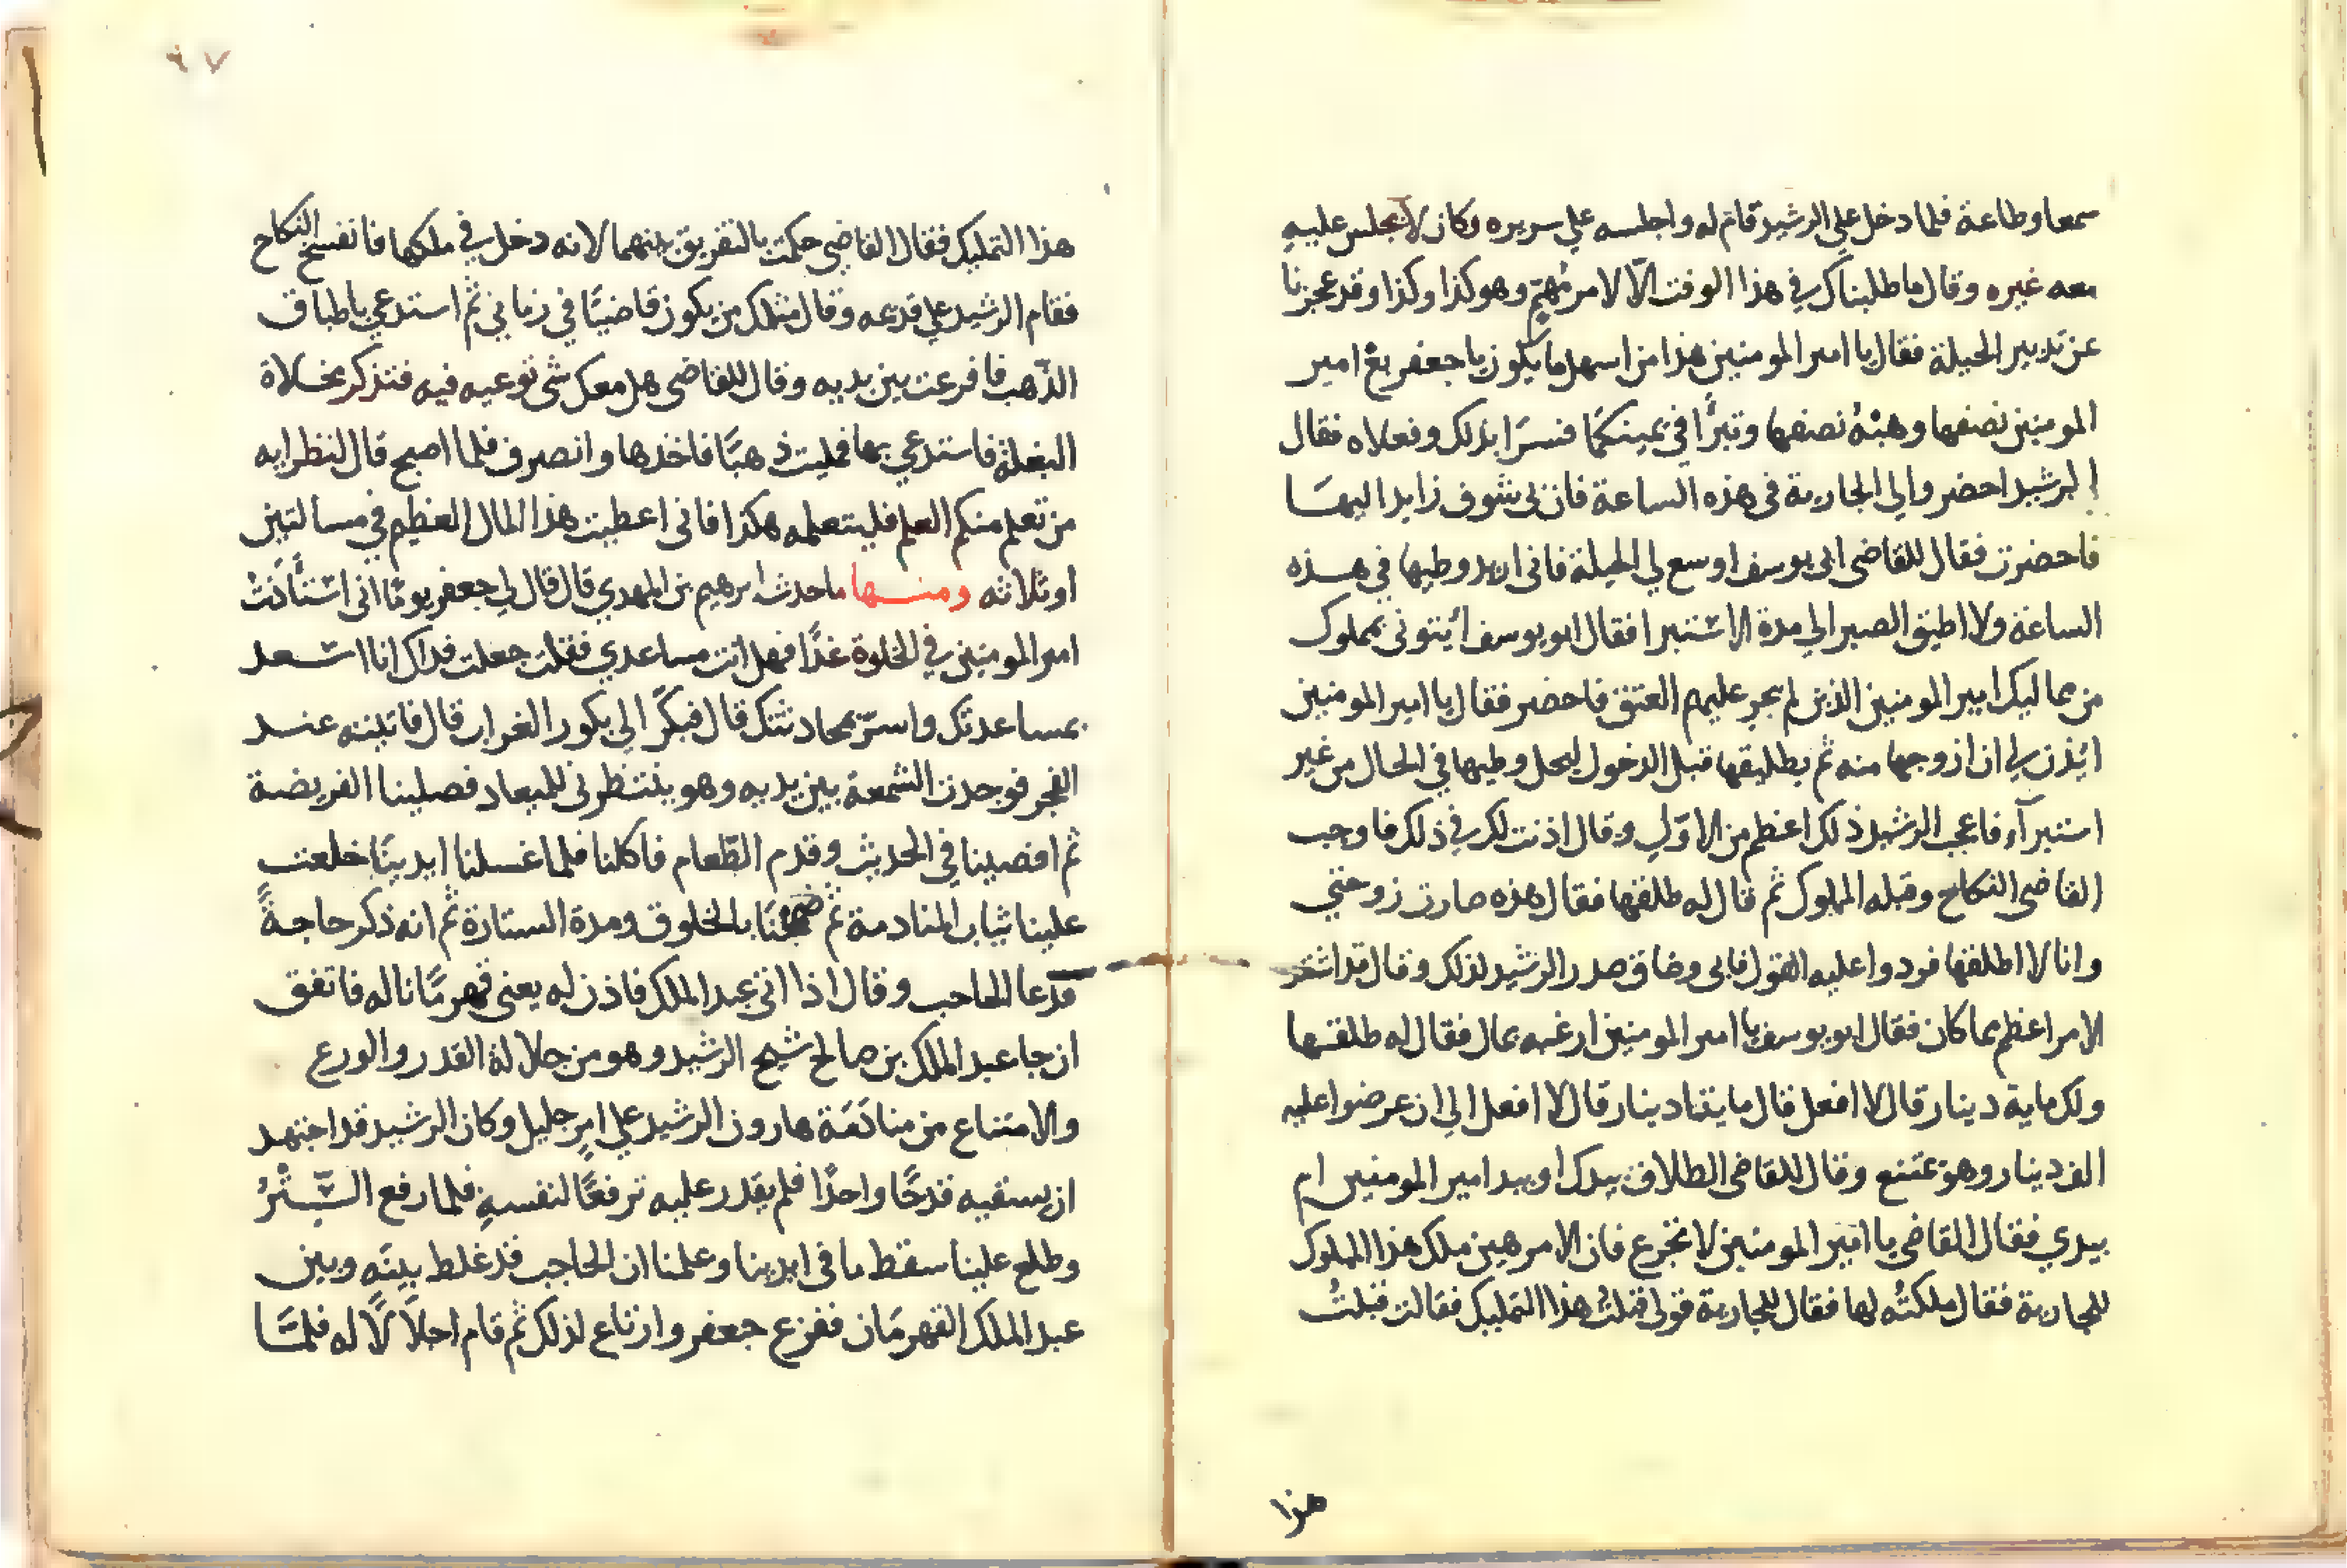 سمعا وطاعة فلما دخل علي الرشيد قام له واجلسه علي سريره وكان لا يجلس عليه
معه غيره وقال ما طلبناك في هذا الوقت الّا لامر مُهمّ وهو كذا وكذا وقد عجزنا
عن تدبير الحيلة فقال يا امير المومنين هذا من اسهل ما يكون يا جعفر بع امير
المومنين نصفها وهبْهُ نصفها وتبرَّا في يمينكما فسرَّا بذلك وفعلاه فقال
الرشيد احضروا لي الجارية في هذه الساعة فان لي شوف زايد اليهَا
فاحضرت فقال للقاضي ابى يوسف اوسع لي الحيلة فانى اريد وطيها في هذه
الساعة ولا اطيق الصبر الي مدة الاستبرا فقال ابو يوسف أيتونى بمملوك
من مماليك امير المومنين الذين لم يجر عليهم العتق فاحضر فقال يا امير المومنين
ائذن لي ان ازوجها منه ثم يطليقها قبل الدخول ليحل وطيها في الحال من غير
استبرآء فاعجب الرشيد ذلك اعظم من الاوّلي وقال اذنت لك في ذلك فاوجب
القاضى النكاح وقبله المملوك ثم قال له طلقها فقال هذه صارت زوجتي
وانا لا اطلقها فرددوا عليه القول فابى وضاق صدر الرشيد لذلك وقال قد اشتد
الامر اعظم مما كان فقال ابو يوسف يا امير المومنين ارغبه بمال فقال له طلقها
ولك ماية دينار قال لا افعل قال مايتا دينار قال لا افعل الي ان عرضوا عليه
الف دينار وهو يمتنع وقال للقاضى الطلاق بيدك او بيد امير المومنين ام
بيدي فقال القاضى يا امير المومنين لا تجزع فان الامر هين ملك هذا المملوك
للجارية فقال ملكتُه لها فقال للجارية قولى قبلتُ هذا التمليك فقالت قبلتُ
هذا
٩٧
هذا التمليك فقال القاضى حكمت بالتفريق بينهما لانه دخل في ملكها فانفسخ النكاح
فقام الرشيد علي قدمه وقال مثلك من يكون قاضيًا في زماني ثم استدعي باطباق
الذّهب فافرعت بين يديه وقال للقاضى هل معك شى توعيه فيه فتذكر مخلاة
البغلة فاستدعي بها فمليت ذهبًا فاخذها وانصرف فلما اصبح قال لنظرايه
من تعلم منكم العلم فليتعلمه هكذا فانى اعطيت هذا المال العظيم في مسالتين
او ثلاثه ومنها ما حدث ابرهيم بن المهدي قال قال لي جعفر يومًا انى استأذنتُ
امير المومنين في الخلوة غدًا فهل انت مساعدي فقلت جعلت فداك انا اسعد
بمساعدتك واسرّ بمحادثتك قال فبكرّ الي بكور الغراب قال فاتيته عند
الفجر فوجدت الشمعة بين يديه وهو ينتظرنى للميعاد فصلينا الفريضة
ثم افضينا في الحديث وقدم الطّعام فاكلنا فلما غسلنا ايدينَا خلعت
علينا ثياب المنادمة ثم ضمخنَا بالخلوق ومدة الستارة ثم انه ذكر حاجةً
فدعا الحاجب وقال اذا اتى عبد الملك فاذن له يعنى قهرمَانا له فاتفق
ان جا عبد الملك بن صالح شيخ الرشيد وهو من جلالة القدر والورع
والامتناع من منادَمَة هارون الرشيد علي امرٍ جليل وكان الرشيد قد اجتهد
ان يسقيه قدحًا واحدًا فلم يقدر عليه ترفعًا لنفسهِ فلما رفع السِّتْرُ
وطلع علينا سقط ما في ايدينا وعلمنا ان الحاجب قد غلط بينَه وبين
عبد الملك القهرمَان ففزع جعفر وارتاع لذلك ثم قام اجلاَلًا له فلمَّا